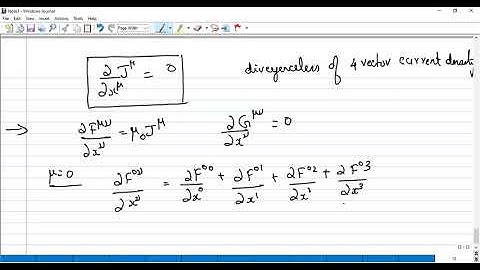 Note1 - Windows Journal
File Edit View Insert Actions Tools Help
Page Width
∂J^μ/∂x^μ = 0 diveyenceless of 4 vector current density
→ ∂F^μν/∂x^ν = μ₀J^μ ∂G^μν/∂x^ν = 0
μ=0 ∂F^0ν/∂x^ν = ∂F^00/∂x^0 + ∂F^01/∂x^1 + ∂F^02/∂x^2 + ∂F^03/∂x^3